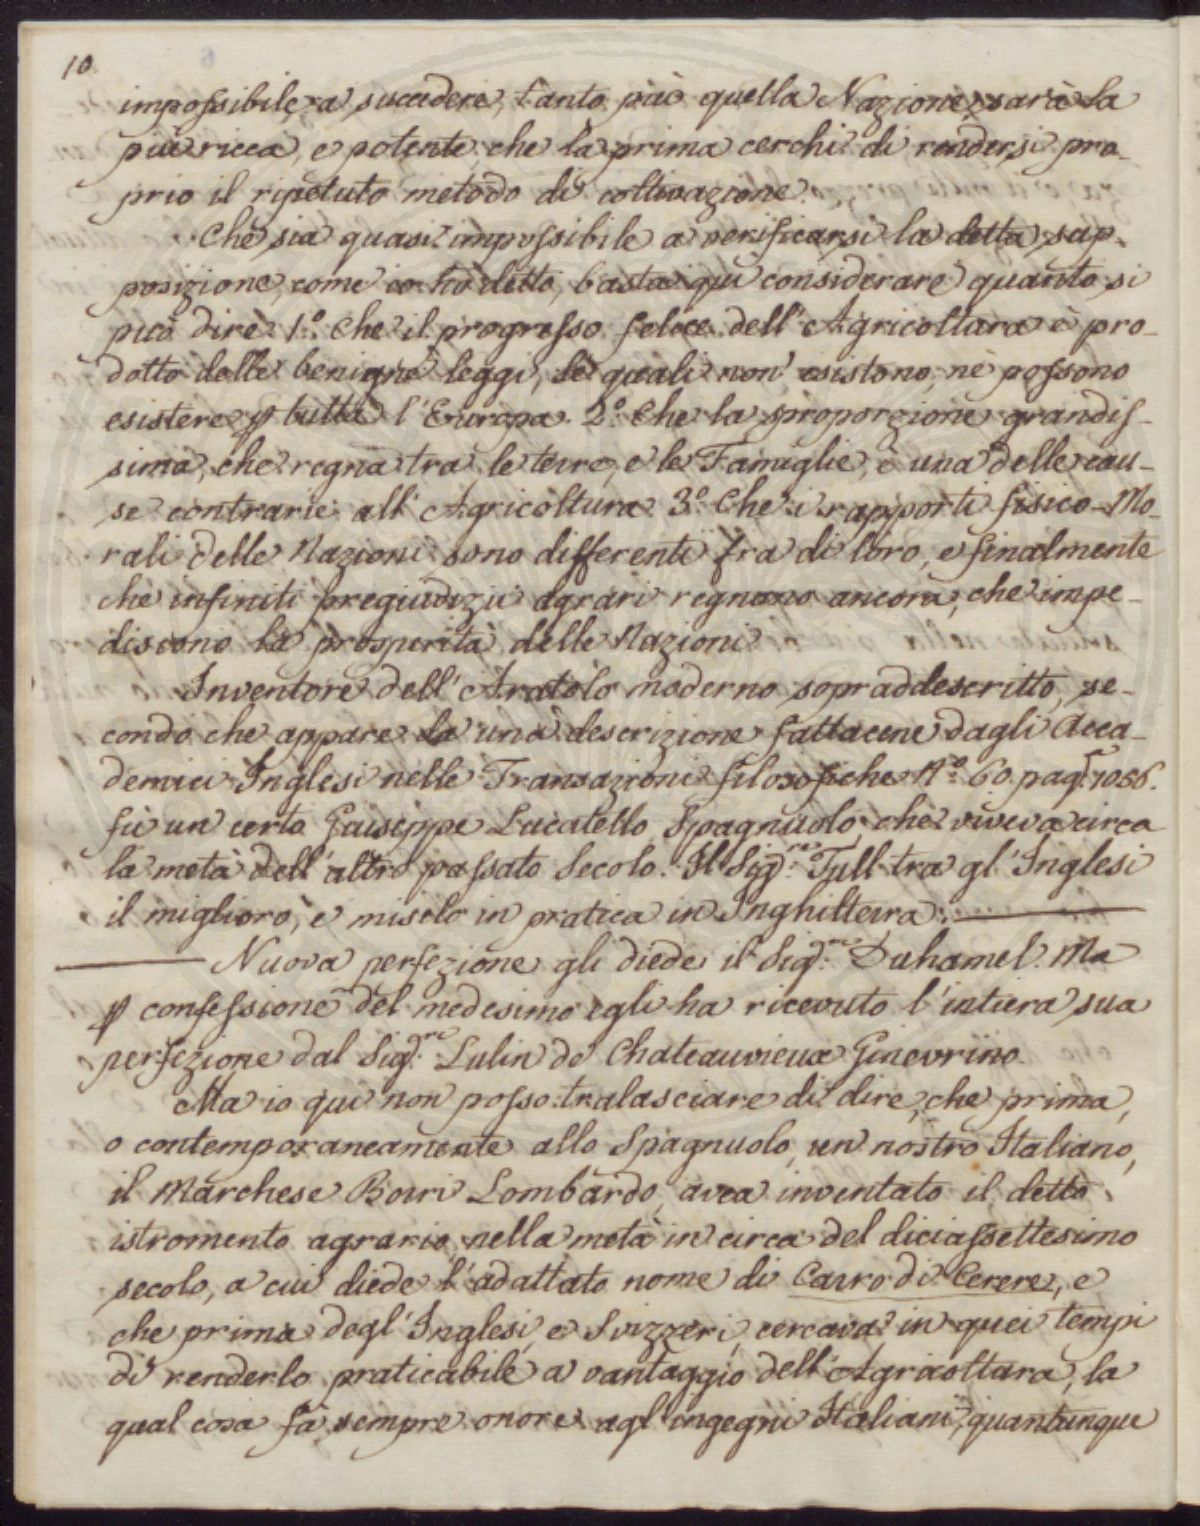 10
impossibile a succedere, tanto più quella Nazione sarà la
più ricca, e potente che la prima cerchi di rendersi pro-
prio il ripetuto metodo di coltivazione.
Che sia quasi impossibile a verificarsi la detta sup-
posizione, come io hò detto, basta qui considerare quanto si
può dire: 1.º Che il progresso felice dell'Agricoltura è pro-
dotto dalle benigne leggi, le quali non esistono, nè possono
esistere p tutta l'Europa. 2.º Che la sproporzione grandis-
sima, che regna tra le terre, e le Famiglie, è una delle cau-
se contrarie all'Agricoltura. 3.º Che i rapporti fisico-Mo-
rali delle Nazioni sono differenti fra di loro, e finalmente
che infiniti pregiudizii agrari regnano ancora, che impe-
discono la prosperità delle Nazioni.
Inventore dell'Aratolo moderno sopraddescritto, se-
condo che appare da una descrizione fattacene dagli Acca-
demici Inglesi nelle Transazioni filosofiche N.º 60. pag. 1056.
fù un certo Giuseppe Lucatello Spagnuolo, che viveva circa
la metà dell'altro passato Secolo. Il Sig.re Tull tra gl'Inglesi
il migliorò, e miselo in pratica in Inghilterra.
Nuova perfezione gli diede il Sig.re Duhamel. Ma
p confessione del medesimo egli ha ricevuto l'intiera sua
perfezione dal Sig.re Lulin de Chateauvieux Ginevrino.
Ma io qui non posso tralasciare di dire, che prima,
o contemporaneamente allo Spagnuolo, un nostro Italiano,
il Marchese Borri Lombardo, avea inventato il detto
istromento agrario nella metà in circa del diciassettesimo
secolo, a cui diede l'adattato nome di Carro di Cerere, e
che prima degl'Inglesi, e Svizzeri, cercava in quei tempi
di renderlo praticabile a vantaggio dell'Agricoltura, la
qual cosa fà sempre onore agl'ingegni Italiani, quantunque